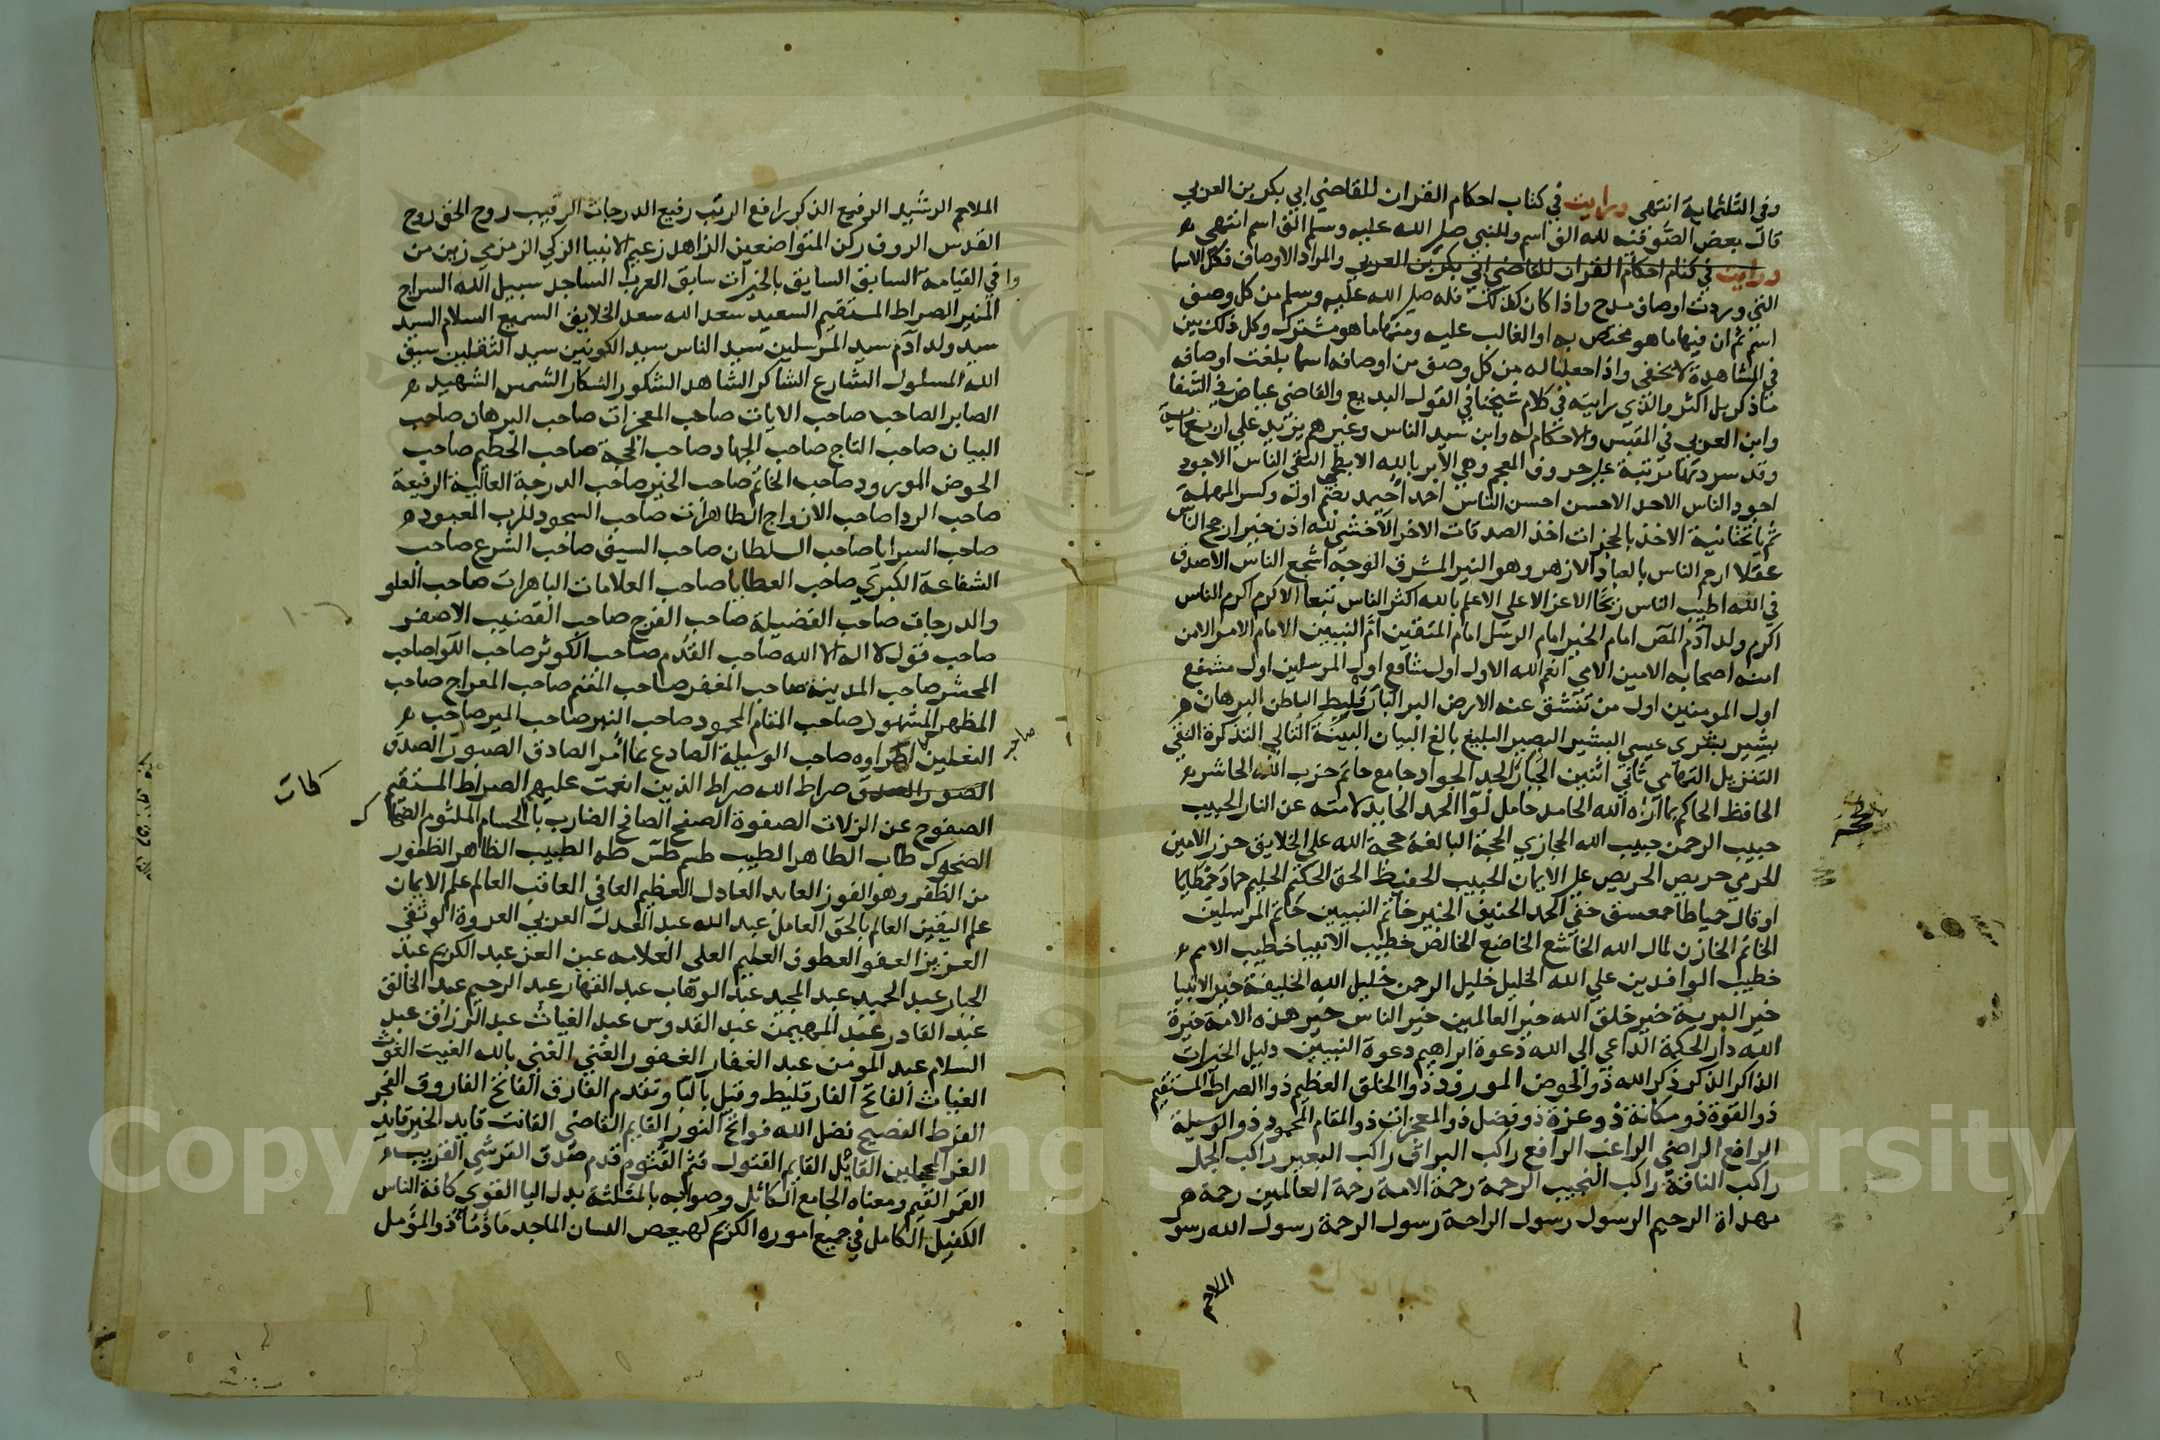 وفي الثلثماية انتهى ورايت في كتاب احكام القران للقاضي ابي بكر بن العربي
قال بعض الصوفية لله الف اسم وللنبي صلى الله عليه وسلم الف اسم انتهى
ورايت في كتاب احكام القران للقاضي ابي بكر بن العربي والمراد الاوصاف فكل الاسما
التي وردت اوصاف مدح واذا كان كذلك فله صلى الله عليه وسلم من كل وصف
اسم ثم ان فيها ما هو مختص به او الغالب عليه ومنها ما هو مشترك وكل ذلك بين
في المشاهدة لا يخفى واذا جعلنا له من كل وصف من اوصافه اسما بلغت اوصافه
ما ذكر بل اكثر والذي رايته في كلام شيخنا في القول البديع والقاضي عياض في الشفا
وابن العربي في القبس والاحكام له وابن سيد الناس وغيرهم يزيد على اربع ماية
وقد سردتها مرتبة على حروف المعجم وهي الابر بالله الابطحي اتقى الناس الاجود
اجود الناس الاحد الاحسن احسن الناس احمد احيد بضم اوله وكسر المهملة
ثم ياتحتانية الاخذ بالحجزات اخذ الصدقات الاخر الاخشى لله اذن خير ارجح الناس
عقلا ارحم الناس بالعباد الازهر وهو النير المشرق الوجه اشجع الناس الاصدق
في الله اطيب الناس ريحا الاعز الاعلى الاعلم بالله اكثر الناس تبعا الاكرم اكرم الناس
اكرم ولد آدم المص امام الخير امام الرسل امام المتقين ام النبيين الامام الامر الامن
امنة اصحابه الامين الامي انعم الله الاول اول شافع اول المرسلين اول مشفع
اول المومنين اول من تنشق عنه الارض البر البارقليط الباطن البرهان
بشير بشرى عيسى البشير البصير البليغ بالغ البيان البينة التالي التذكرة التقي
التنزيل التهامي ثاني اثنين الجبار الجد الجواد جامع حاتم حزب الله الحاشر
الحافظ الحاكم بما اراه الله الحامد حامل لوا الحمد الحايد لامته عن النار الحبيب
حبيب الرحمن حبيب الله الحجازي الحجة البالغة حجة الله على الخلايق حرز الامين
الحرمي حريص الحريص على الايمان الحبيب الحفيظ الحق الحكيم الحليم حماد حمطايا
او قال حمياطا حمعسق حفي الحمد الحنيف الخبير خاتم النبيين خاتم المرسلين
الخاتم الخازن لمال الله الخاشع الخاضع الخالص خطيب الانبيا خطيب الامم
خطيب الوافدين على الله الخليل خليل الرحمن خليل الله الخليفة خير الانبيا
خير البرية خير خلق الله خير العالمين خير الناس خير هذه الامة خيرة
الله دار الحكمة الداعي الى الله دعوة ابراهيم دعوة النبيين دليل الخيرات
الذاكر الذكر ذكر الله ذو الحوض المورود ذو الخلق العظيم ذو الصراط المستقيم
ذو القوة ذو مكانة ذو عزة ذو فضل ذو المعجزات ذو المقام المحمود ذو الوسيلة
الرافع الراضي الراغب الرافع راكب البراق راكب البعير راكب الجمل
راكب الناقة راكب النجيب الرحمة رحمة الامة رحمة العالمين رحمة
مهداة الرحيم الرسول رسول الراحة رسول الرحمة رسول الله رسو
الملاحم
الملاحم الرشيد الرفيع الذكر رافع الرتب رفيع الدرجات الرقيب روح الحق روح
القدس الروف ركن المتواضعين الزاهد زعيم الانبيا الزكي الزمزمي زين من
وافى القيامة السابق السابق بالخيرات سابق العرب الساجد سبيل الله السراج
المنير الصراط المستقيم السعيد سعد الله سعد الخلايق السميع السلام السيد
سيد ولد آدم سيد المرسلين سيد الناس سيد الكونين سيد الثقلين سيف
الله المسلول الشارع الشاكر الشاهد الشكور الشكار الشمس الشهيد
الصابر الصاحب صاحب الايات صاحب المعجزات صاحب البرهان صاحب
البيان صاحب التاج صاحب الجهاد صاحب الحجة صاحب الحطيم صاحب
الحوض المورود صاحب الخاتم صاحب الخير صاحب الدرجة العالية الرفيعة
صاحب الردا صاحب الازواج الطاهرات صاحب السجود للرب المعبود
صاحب السرايا صاحب السلطان صاحب السيف صاحب الشرع صاحب
الشفاعة الكبرى صاحب العطايا صاحب العلامات الباهرات صاحب العلو
والدرجات صاحب الفضيلة صاحب الفرج صاحب القضيب الاصفر
صاحب قول لا اله الا الله صاحب القدم صاحب الكوثر صاحب اللوا صاحب
المحشر صاحب المدينة صاحب المغفر صاحب المغنم صاحب المعراج صاحب
المظهر المشهود صاحب المقام المحمود صاحب المنبر صاحب الميزر صاحب
صاحب
النعلين الهراوه صاحب الوسيلة الصادع بما امر الصادق الصبور الصدق
الصور الصدق صراط الله صراط الذين انعمت عليهم الصراط المستقيم
كمات
الصفوح عن الزلات الصفوة الصفح الصافح الضارب بالحسام الملثوم الضحاك
الضحوك طاب الطاهر الطيب طسم طس طه الطبيب الظاهر الظفور
من الظفر وهو الفوز العابد العادل العظيم العافي العاقب العالم علم الايمان
علم اليقين العالم بالحق العامل عبد الله عبد العدل العربي العروة الوثقى
العزيز العفو العطوف العليم العلي العلامه عين العز عبد الكريم عبد
الجبار عبد الحميد عبد المجيد عبد الوهاب عبد القهار عبد الرحيم عبد الخالق
عبد القادر عبد المهيمن عبد القدوس عبد الغياث عبد الرزاق عبد
السلام عبد المومن عبد الغفار الغفور الغني الغني بالله الغيث الغوث
الغياث الفاتح الفارقليط وقيل بالبا وتقدم الفارق الفاتح الفاروق الفجر
الفرط الفصيح فضل الله فواتح النور القايم القاضي القانت قايد الخير قايد
الغر المحجلين القايل القايم القتول قثم القثوم قدم صدق القرشي القريب
القمر القيم ومعناه الجامع الكامل وصوابه بالمثلثة بدل اليا القوي كافة الناس
الكفيل الكامل في جميع اموره الكريم كهيعص اللسان الماجد ماذ ماذ المؤمل